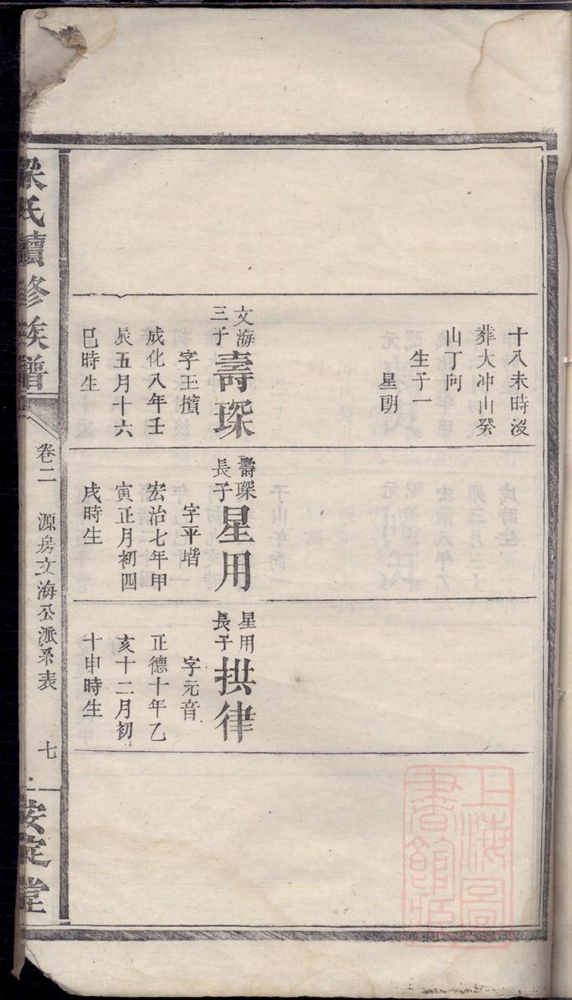 十八未時沒
葬大冲山癸
山丁向
生子一
星朗
文海
三子
壽琛
字玉
成化八年壬
辰五月十六
巳時生
壽琛
長子
星用
字平堦
宏治七年甲
寅正月初四
戌時生
星用
長子
拱律
字元音
正德十年乙
亥十二月初
十申時生
梁氏續修族譜
卷二 源房文海公派系表 七
安定堂
上海圖書館藏